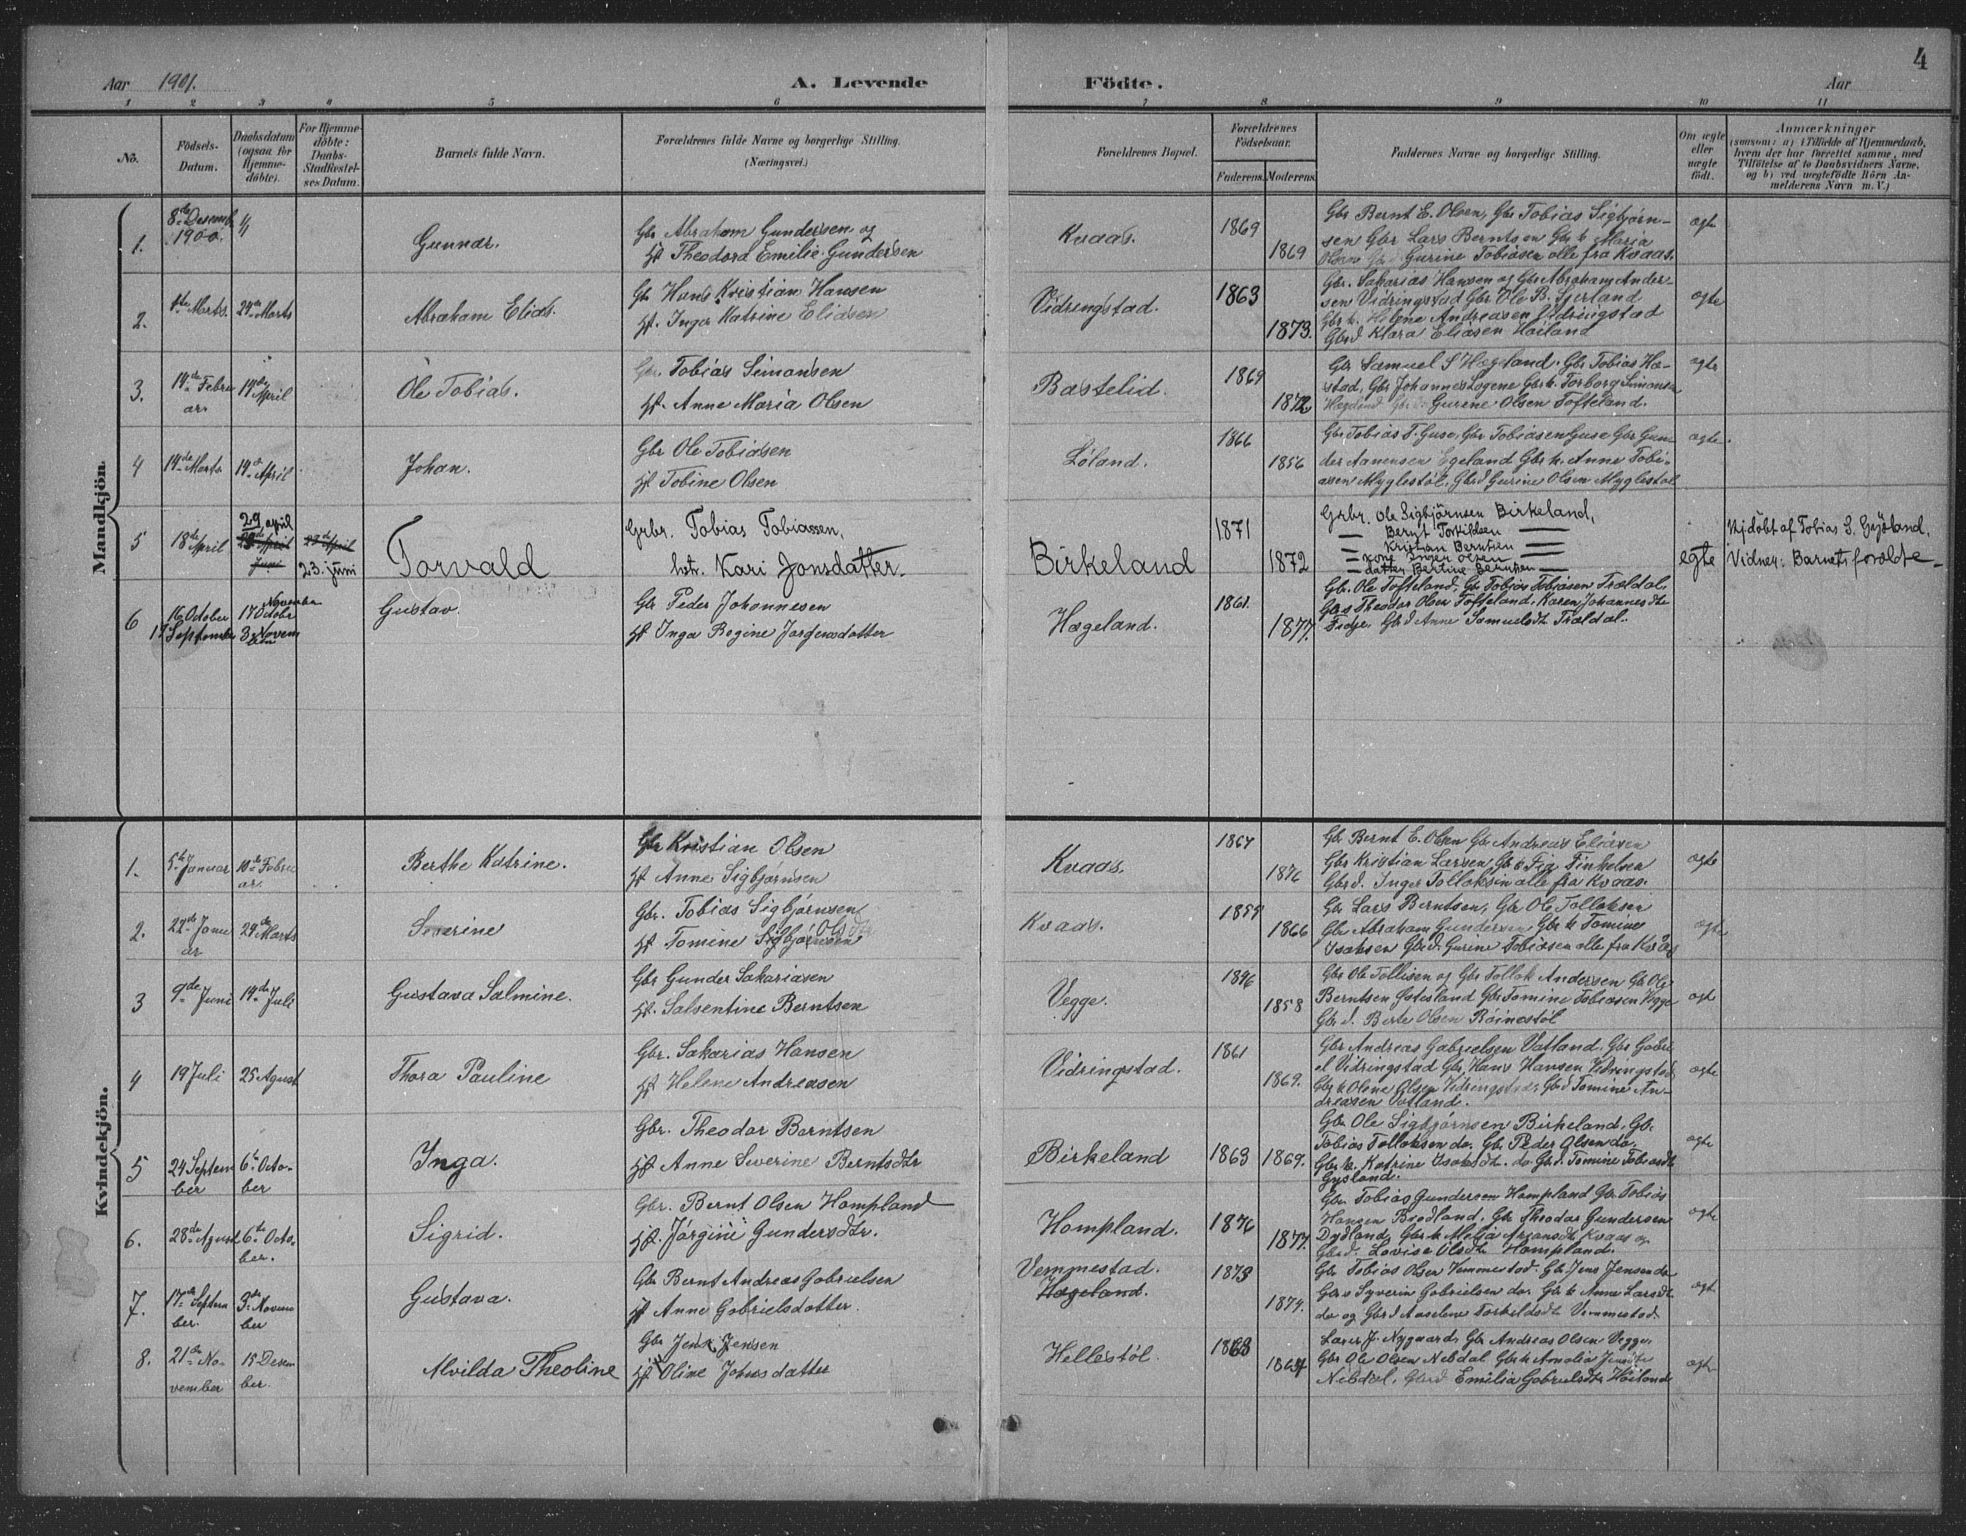 4
Aar 1901. A. Levende Födte. Aar
1 2 3 4 5 6 7 8 9 10 11
No. Födsels-Datum. Daabsdatum (ogsaa for Hjemmedöbte). For Hjemmedöbte: Daabs-Stadfæstelses Datum. Barnets fulde Navn. Forældrenes fulde Navne og borgerlige Stilling. (Næringsvei.) Forældrenes Bopæl. Forældrenes Födselsaar. Faderens. Moderens. Faddernes Navne og borgerlige Stilling. Om ægte eller uægte födt. Anmærkninger (saasom: a) i Tilfælde af Hjemmedaab, hvem der har forrettet samme, med Tilföielse af to Daabsvidners Navne, og b) ved uægtefödte Börn Anmelderens Navn m. V.)
Mandkjön.
1. 8de Desemb 1900. Gunnar. Gbr Abraham Gundersen og
Hst Theodora Emilie Gundersen
Kvaas. 1869 1869
Gbr Bernt E. Olsen, Gbr Tobias Sigbjørn-
sen Gbr Lars Berntsen Gbr k Maria
Olsen Gbr d Gurine Tobiasen alle fra Kvaas.
ægte
2. Marts. 24de Marts Abraham Elias. Gbr Hans Kristian Hansen
Hst. Inger Katrine Eliasen
Vidringstad. 1863 1873.
Gbr. Sakarias Hansen og Gbr Abraham Ander-
sen Vidringstad Gbr Ole B.
Gbr k. Helene Andreasen Vidringstad
Gbr d Klara Eliasen Høiland
ægte
3. 14de Februar. 14de April Ole Tobias. Gbr Tobias Simonsen
Hst. Anne Maria Olsen
Bastelid. 1869 1872
Gbr Samuel S Hægeland. Gbr Tobias Hæ-
stad, Gbr Johannes Gbr k. Torborg Simonsen
Hægeland Gbr d Gurine Olsen Tofteland.
ægte
4 14de Marts 14de April Johan. Gbr Ole Tobiasen
Hst Tobine Olsen
Løland. 1866 1856
Gbr Tobias T. Guse, Gbr Tobiasen Guse Gbr Gun-
der Aanensen Egeland Gbr k. Anne Tobi-
asen Myglestøl, Gbr d Gurine Olsen Myglestøl
ægte.
5 18de April 29 april 23. juni Torvald Grbr. Tobias Tobiassen,
hst. Kari Jonsdatter.
Birkeland 1871 1872
Grbr. Ole Sigbjörnsen Birkeland,
— Bernt Torkildsen —
— Kristian Berntsen —
— kone Inger Olsen —
— datter Bertine Berntsen —
egte Hjdöbt af Tobias S. Gysland.
Vidner: Barnets foreldre
6 16 October 17 Octobr November
17 September 3 November
Gustav. Gbr Peder Johannesen
Hst Inga Regine Jørgensdatter
Hægeland. 1861. 1877.
Gbr. Ole Tofteland, Gbr Tobias Tobiasen Trældal.
Gbr s Theodor Olsen Tofteland. Karen Johannesdtr
Fidje, Gbr d Anne Samuelsdtr Trældal.
Kvindekjön.
1. 5te Januar 10de Februar. Berthe Katrine. Gbr Kristian Olsen
Hst Anne Sigbjørnsen
Kvaas. 1867 1876
Gbr Bernt E. Olsen Gbr Andreas Eliasen
Gbr Kristian Larsen, Gbr k Sig
Gbr d. Inger Tolloksen alle fra Kvaas.
ægte
2. 22de Januar 24de Marts Severine Gbr. Tobias Sigbjørnsen
Hst Tomine Sigbjørnsen Olsdtr
Kvaas. 1859 1866
Gbr Lars Berntsen, Gbr Ole Tolloksen
Gbr Abraham Gundersen Gbr k Tomine
Isaksen Gbr d. Gurine Tobiasen alle fra Kvaas
ægte
3 9de Juni 14de Juli Gustava Salmine. Gbr Gunder Sakariasen
Hst. Salsentine Berntsen
Vegge. 1846 1858
Gbr Ole Tollisen og Gbr Tollok Andersen Gbr Ole
Berntsen Østesland Gbr k Tomine Tobiasen Vegge
Gbr d. Berte Olsen Røinestøl
ægte
4 19 Juli 25 Agust Thora Pauline Gbr. Sakarias Hansen
Hst Helene Andreasen
Vidringstad. 1861 1869.
Gbr Andreas Gabrielsen Vatland. Gbr Gabri-
el Vidringstad Gbr, Hans Hansen Vidringstad
Gbr k Olene Olsen Vidringstad, Gbr d Tomine An-
dreasen Vatland.
ægte
5 24 September 6te October Inga. Gbr. Theodor Berntsen
Hst Anne Severine Berntsdtr
Birkeland 1863 1869.
Gbr Ole Sigbjørnsen Birkeland, Gb.
Tobias Tolloksen do. Gbr Peder Olsen do.
Gbr k. Katrine Isaksdt. do Gbr d. Tomine Tobiasdtr
Gysland.
ægte
6. 28de Agust 6te October. Sigrid. Gbr. Bernt Olsen Hompland
Hst. Jørgine Gundersdtr.
Hompland. 1876 1877.
Gbr. Tobias Gundersen Hompland Gbr Tobias
Hansen Brødland. Gbr Theodor Gundersen
Dydland, Gbr k Melia Kvaas og
Gbr d. Lovise Olsdtr Hompland.
ægte
7. 17de September. 3de November Gustava. Gbr Bernt Andreas Gabrielsen
Hst Anne Gabrielsdatter.
Vemmestad.
Hægeland. 1873 1874.
Gbr Tobias Olsen Vemmestad. Gbr Jens Jensen do
Gbr s Syverin Gabrielsen do. Gbr k Anne Larsdt
do og Gbr d Aaselene Torkeldsdtr Vemmestad.
ægt
8. 21de November 15 Desember. Alvilda Theoline Gbr Jens Jensen
Hst Oline Johnsdatter
Hellestøl. 1863 1864
Lærer J. Nygaard, Gbr Andreas Olsen Vegge,
Gbr Ole Olsen Nebdal Gbr k Amalia Jensdtr
Nebdal. Gbr d Emilia Gabrielsdtr Høiland
ægte